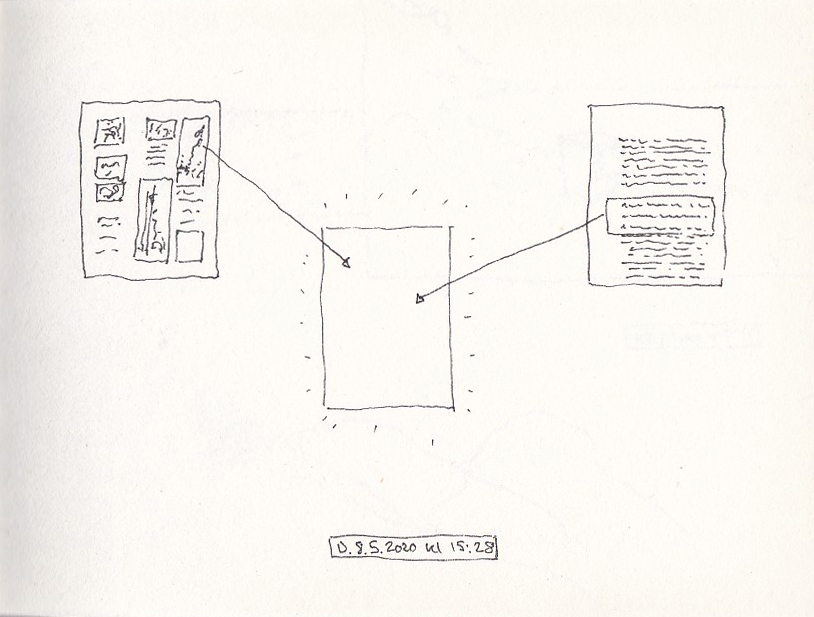 D. 8.5.2020 kl 15:28